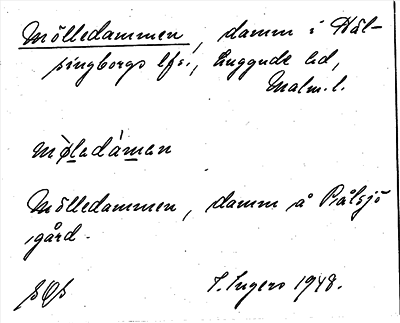 Mölledammen, damm i Häl-
singborgs lfs., Luggude hd,
Malm. l.
møladàmən
Mölledammen, damm å Pålsjö
gård.
I. Ingers 1948.